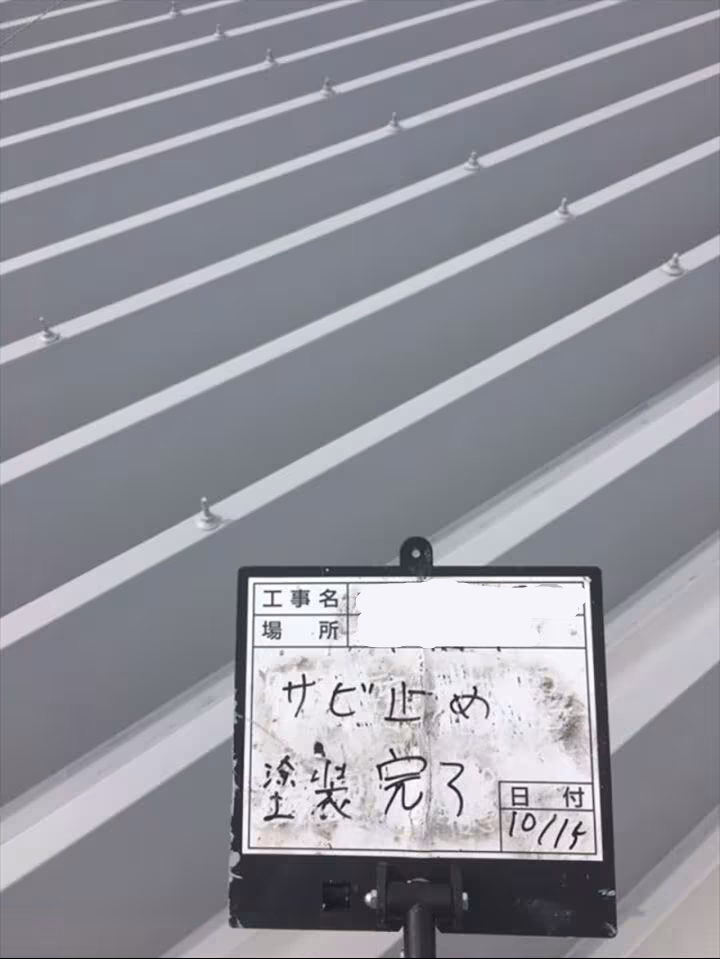 工事名
場所
サビ止め
塗装完了
日付
10/15